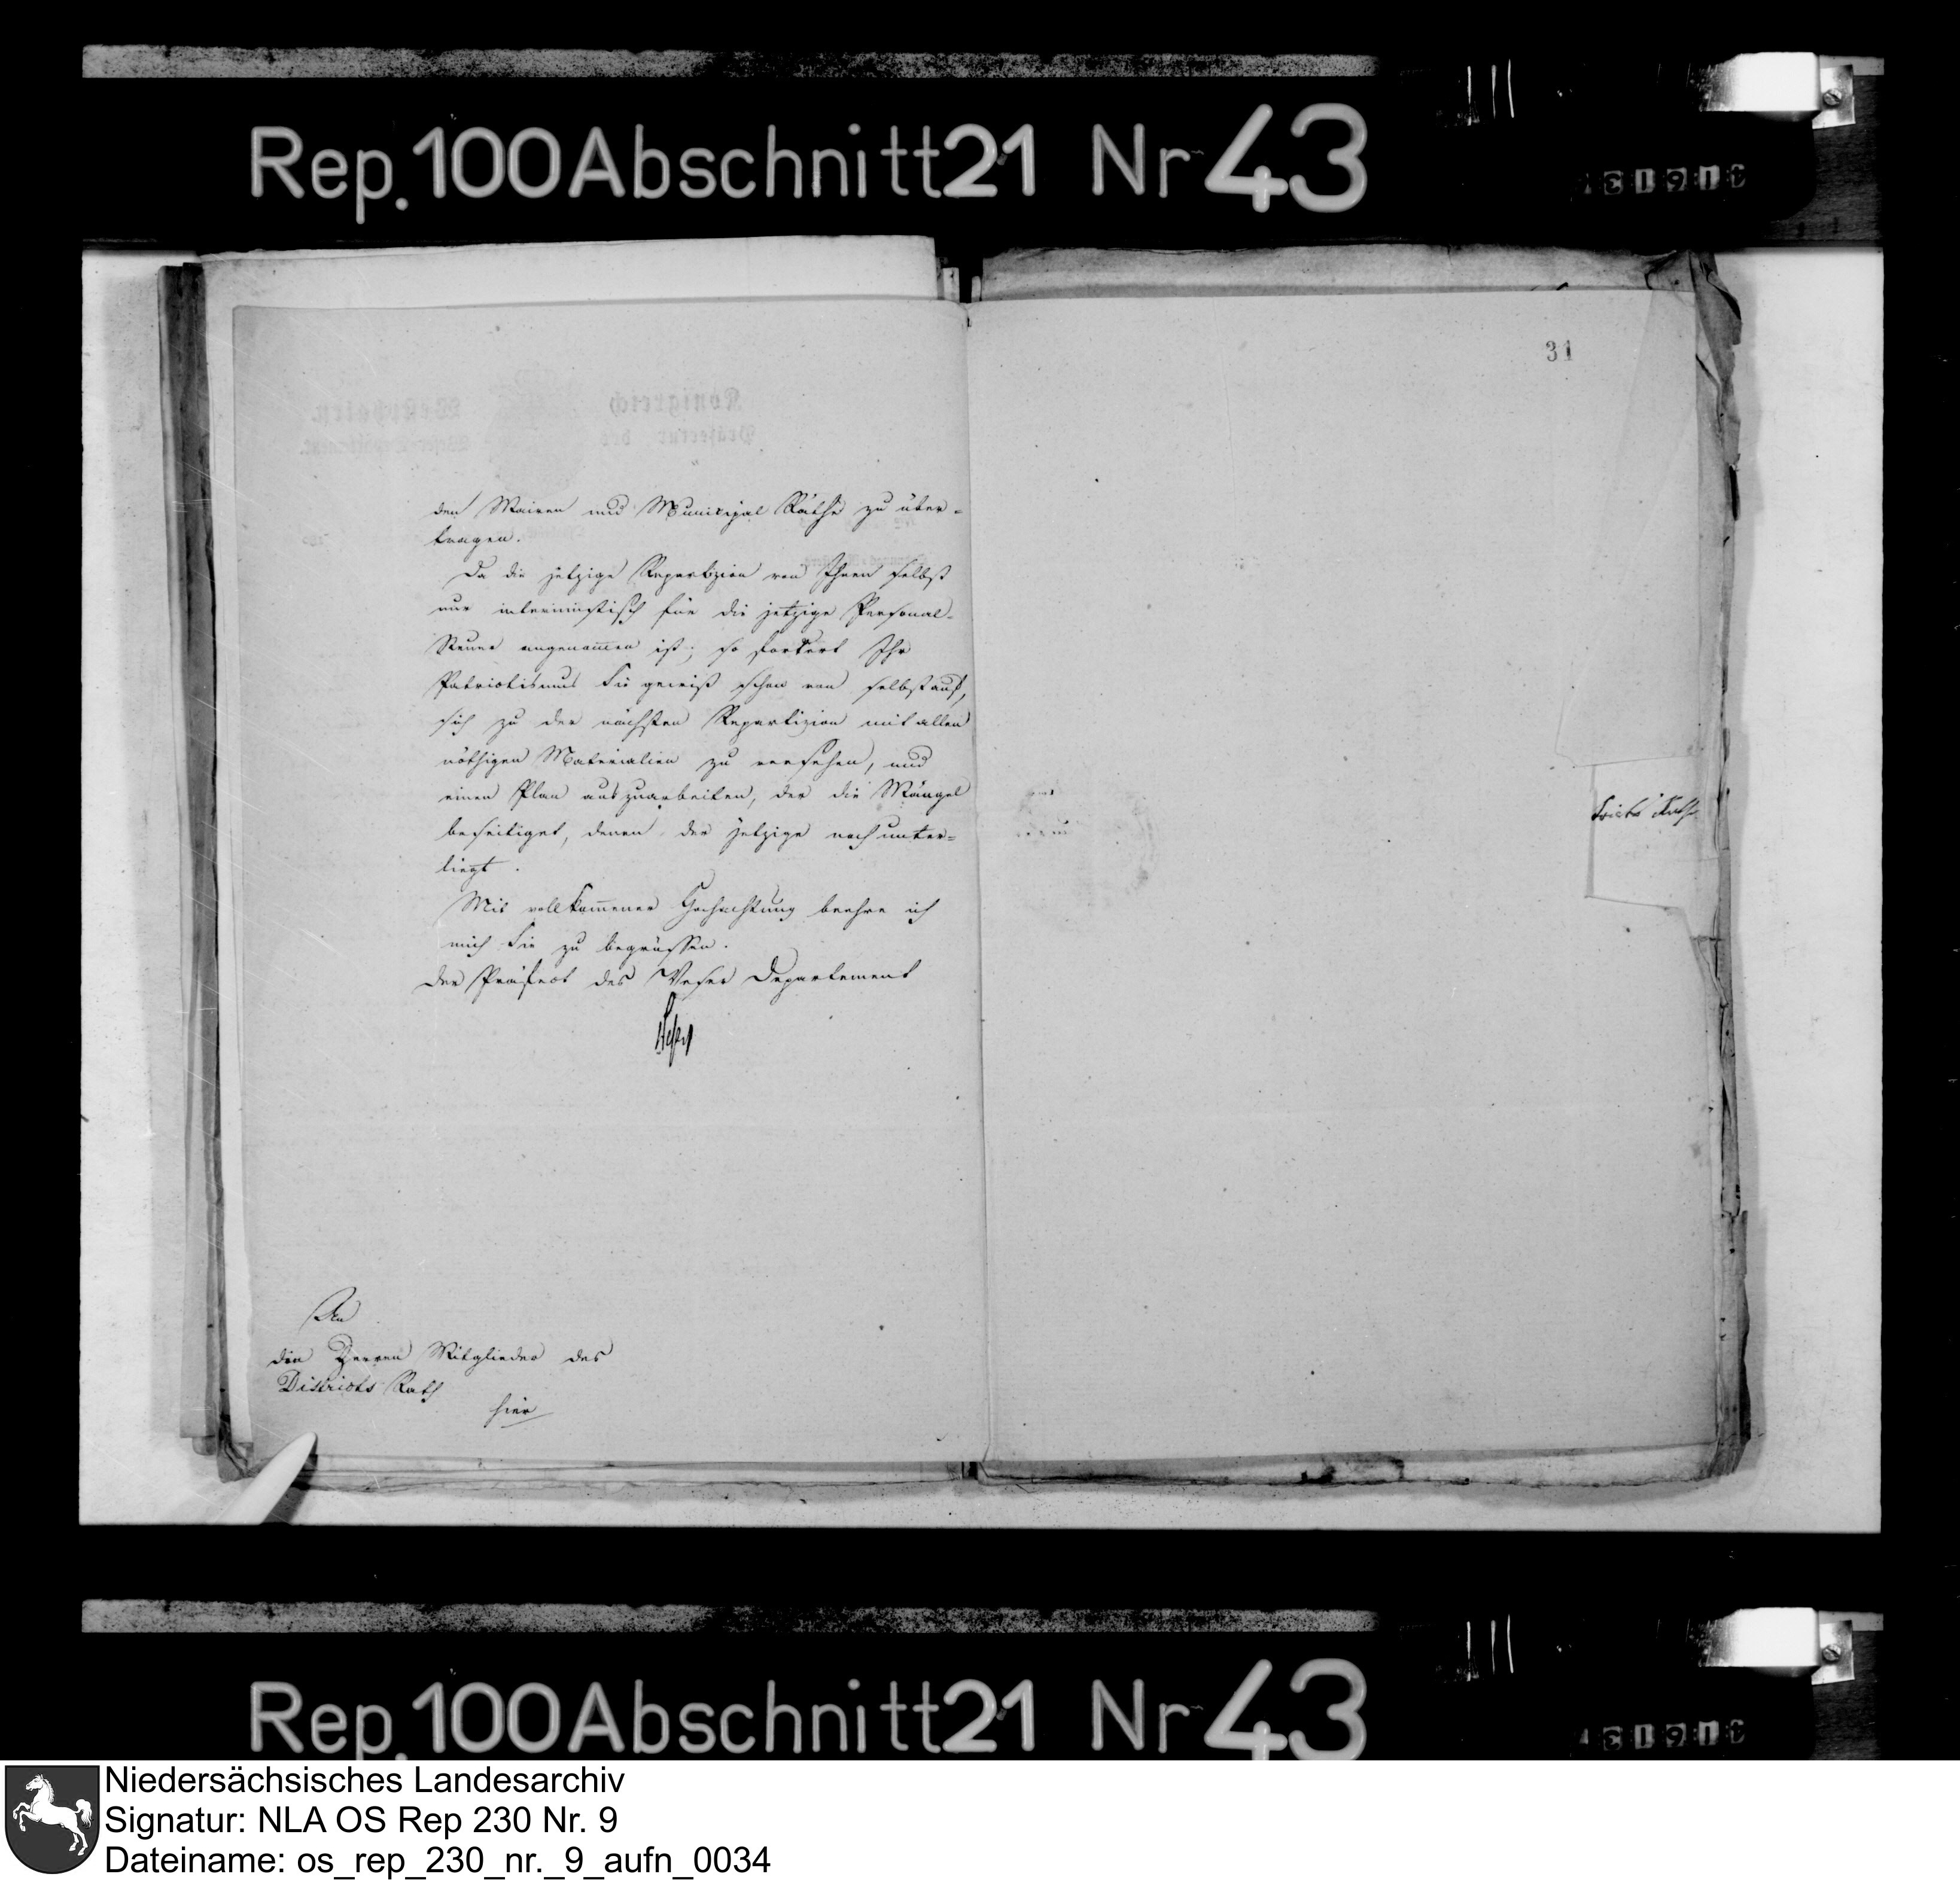 Rep. 100 Abschnitt 21 Nr 43
31
den Mairen und Municipal Räthe zu über-
tragen.
Da die jetzige Repartizion von Ihnen selbst
nur interimistisch für die jetzige Personal-
Steuer angenom̄en ist; so fordert Ihr
Patriotismus Sie gewiß schon von selbst auf,
sich zu der nächsten Repartizion mit allen
nöthigen Materialien zu versehen, und
einen Plan auszuarbeiten, der die Mängel
beseitiget, denen der jetzige noch unter-
liegt.
Mit vollkom̄ener Hochachtung beehre ich
mich Sie zu begrüssen.
Der Präfect des Weser Departement
An
die Herren Mitglieder des
Districts Rath
hier
Rep. 100 Abschnitt 21 Nr 43
Niedersächsisches Landesarchiv
Signatur: NLA OS Rep 230 Nr. 9
Dateiname: os_rep_230_nr._9_aufn_0034